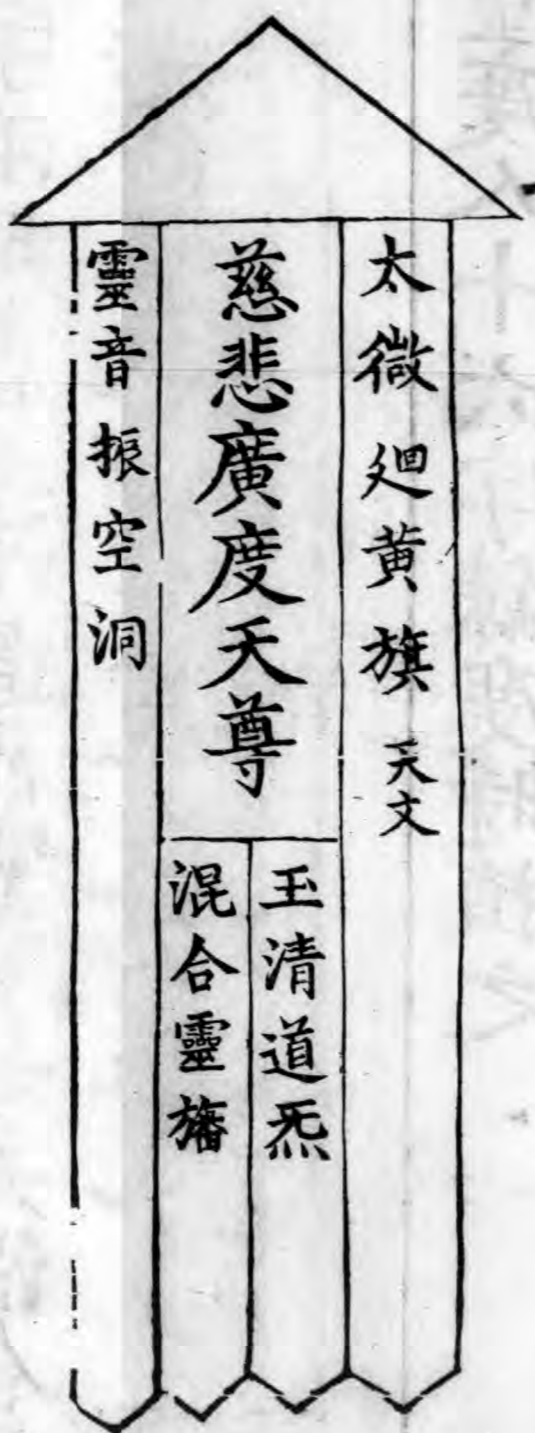 太微廻黄旗天文
慈悲廣度天尊
玉清道炁
混合靈旛
靈音振空洞